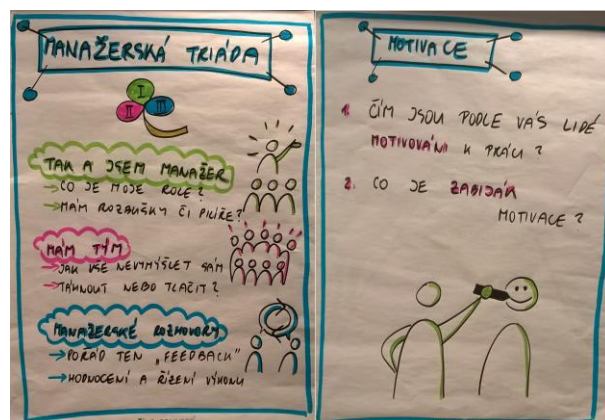 MANAŽERSKÁ TRIÁDA
I
II
III
TAK A JSEM MANAŽER
→ CO JE MOJE ROLE?
→ MÁM ROZBUŠKY ČI PILÍŘE?
MÁM TÝM
→ JAK VŠE NEVYMÝŠLET SÁM
→ TÁHNOUT NEBO TLAČIT?
MANAŽERSKÉ ROZHOVORY
→ POŘÁD TEN „FEEDBACK"
→ HODNOCENÍ A ŘÍZENÍ VÝKONU
MOTIVACE
1. ČÍM JSOU PODLE VÁS LIDÉ
MOTIVOVÁNI K PRÁCI?
2. CO JE ZABIJÁK
MOTIVACE?